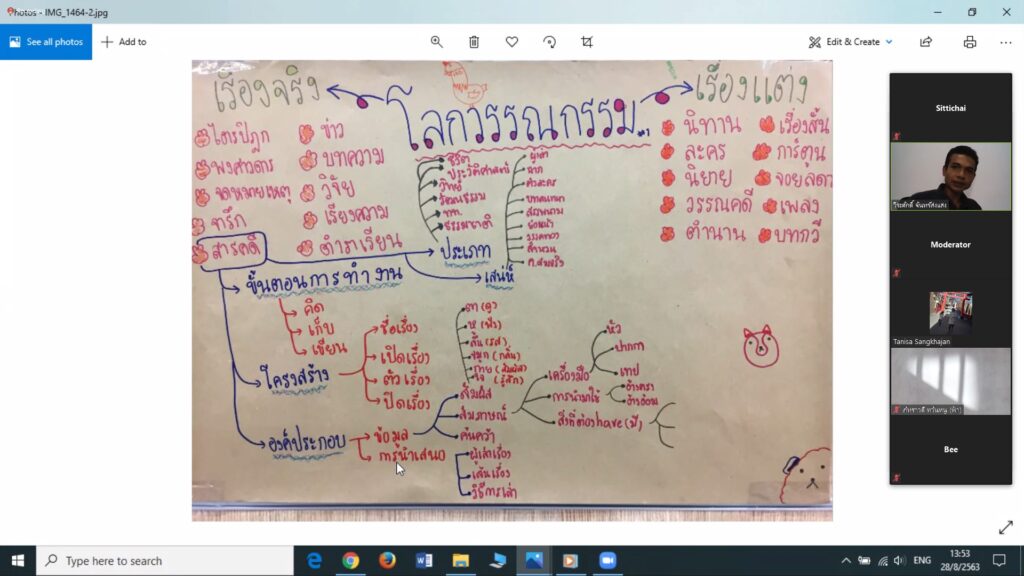 Photos - IMG_1464-2.jpg
See all photos
Add to
Edit & Create
เรื่องจริง
โลกวรรณกรรม
เรื่องแต่ง
ไตรปิฎก
พงศาวดาร
จดหมายเหตุ
จารึก
สารคดี
ข่าว
บทความ
วิจัย
เรียงความ
ตำราเรียน
ชีวิต
ประวัติศาสตร์
วิทย์
วัฒนธรรม
ททท.
ธรรมชาติ
ประเภท
ผู้เล่า
ฉาก
ตัวละคร
บทสนทนา
สรรพนาม
ย่อหน้า
วรรคทอง
สำนวน
เสน่ห์
นิทาน
ละคร
นิยาย
วรรณคดี
ตำนาน
เรื่องสั้น
การ์ตูน
เพลง
บทกวี
ขั้นตอนการทำงาน
คิด
เก็บ
เขียน
โครงสร้าง
ชื่อเรื่อง
เปิดเรื่อง
ตัวเรื่อง
ปิดเรื่อง
องค์ประกอบ
ข้อมูล
การนำเสนอ
ตา (ดู)
หู (ฟัง)
ลิ้น (รส)
จมูก (กลิ่น)
กาย (สัมผัส)
ใจ (รู้สึก)
สัมผัส
สัมภาษณ์
ค้นคว้า
ผู้เล่าเรื่อง
เส้นเรื่อง
วิธีการเล่า
เครื่องมือ
การนำมาใช้
สิ่งที่ต้อง have (มี)
หัว
ปากกา
เทป
อ้างตรง
อ้างอ้อม
Sittichai
Moderator
Tanisa Sangkhajan
Bee
Type here to search
ENG
13:53
28/8/2563